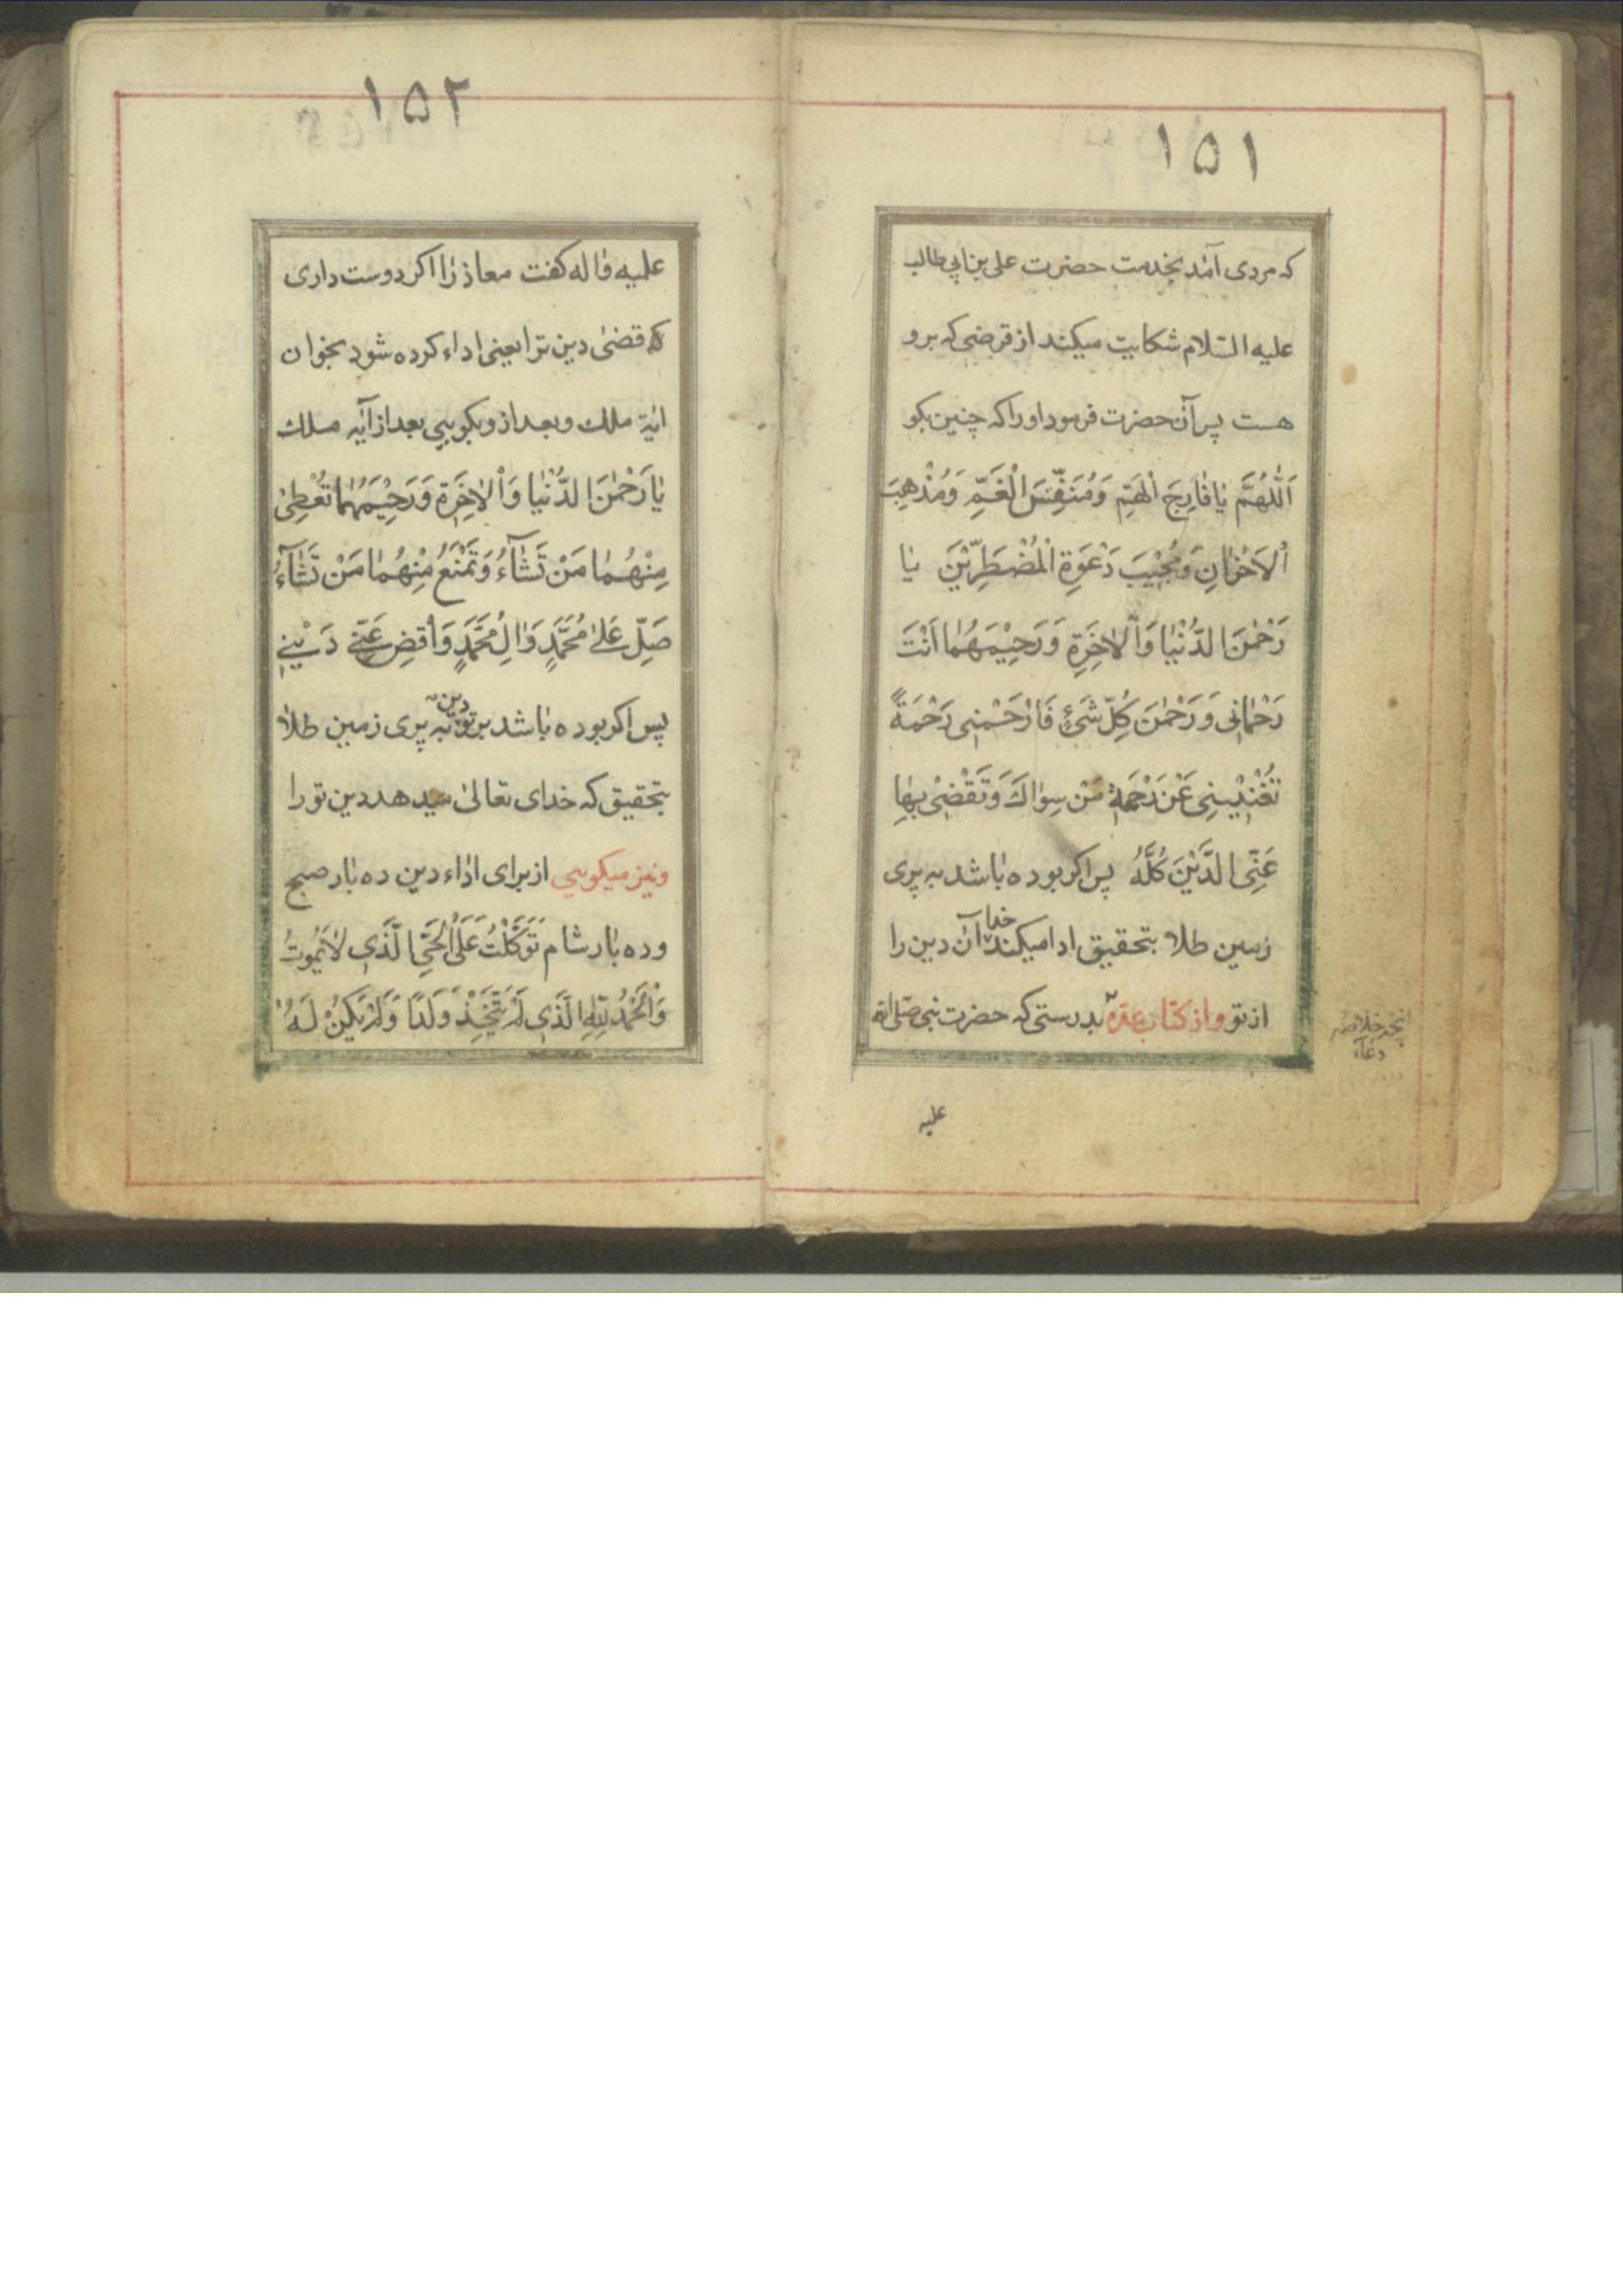 ۱۵۱
که مردی آمد بخدمت حضرت علی بن ابی طالب
علیه السّلام شکایت میکند از قرضی که برو
هست پس آن حضرت فرمود او را که چنین بکو
اَللّٰهُمَّ یٰا فٰارِجَ الْهَمِّ وَمُنَفِّسَ الْغَمِّ وَمُذْهِبَ
اْلاَحْزٰانِ وَمُجْیبَ دَعْوَةِ الْمُضْطَرِّیْنَ یٰا
رَحْمٰنَ الدُّنْیٰا وَاْلاٰخِرَةِ وَرَحِیْمَهُمٰا اَنْتَ
رَحْمٰانی وَرَحْمٰنَ کُلِّ شَیْءٍ فَارْحَمْنی رَحْمَةً
تُغْنِیْنِی عَنْ رَحْمَةِ مَنْ سِوٰاكَ وَتَقْضْی بِهٰا
عَنِّی الدَّیْنَ کُلَّهُ پس اکر بوده بٰاشد به پری
زمین طلا بتحقیق ادا میکند خدا آن دین را
از تو و از کتاب عدّه بدرستی که حضرت نبی صلی الله
دعاء
علیه
۱۵۲
علیه وٰاله کفت معاذ رٰا اکر دوست داری
که قضیٰ دین ترا یعنی اداء کرده شود بخوان
ایٰة ملك وبعد از و بکویی بعد از آیٰه ملك
یٰا رَحْمٰنَ الدُّنْیٰا وَاْلاٰخِرَةِ وَرَحِیْمَهُمٰا تُعْطِیْ
مِنْهُمٰا مَنْ تَشٰآءُ وَتَمْنَعُ مِنْهُمٰا مَنْ تَشٰآءُ
صَلِّ عَلیٰ مُحَمَّدٍ وَاٰلِ مُحَمَّدٍ وَاْقضِ عَنّی دَیْنِی
پس اکر بوده بٰاشد بر تو دین به پری زمین طلاٰ
بتحقیق که خدای تعالیٰ میدهد دین تو را
ونیز میکویی از برای ادٰاء دین ده بٰار صبح
وده بٰار شام تَوَکَّلْتُ عَلَی الْحَیِّ الَّذی لاٰیَمُوتُ
وَالْحَمْدُ لِلّٰهِ الَّذی لَمْ یَتَّخِذْ وَلَدًا وَلَمْ یَکُنْ لَهُ